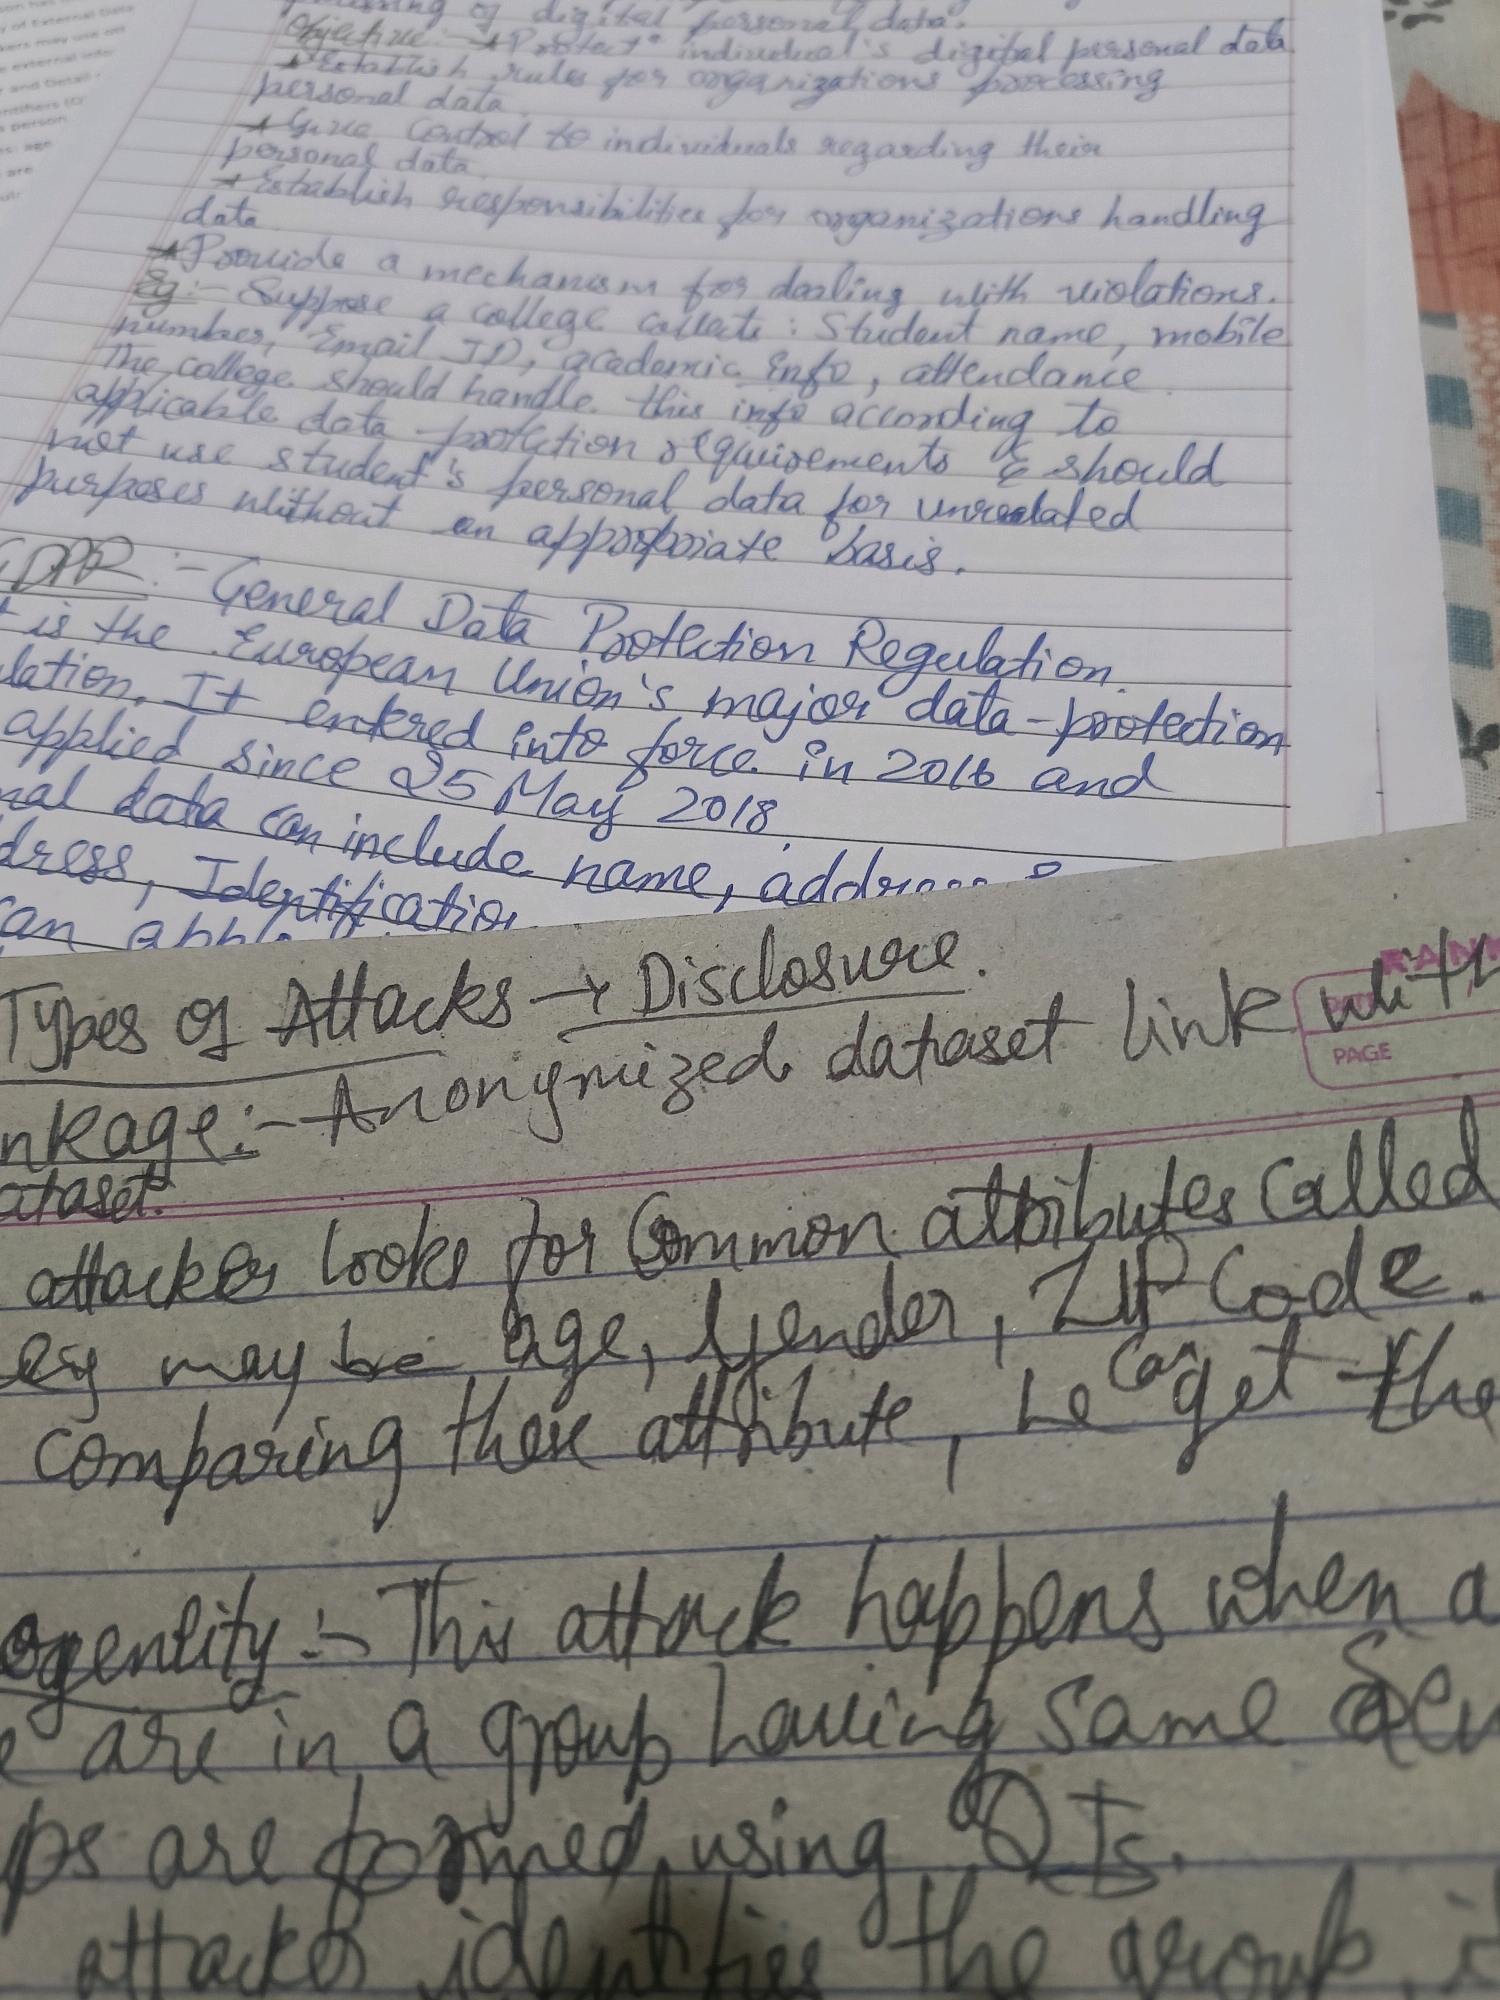 of External Data
may use
of digital personal data.
Objective :- → Protect individual's digital personal data
→ Establish rules for organizations processing
personal data.
→ Give control to individuals regarding their
personal data.
→ Establish responsibilities for organizations handling
data
→ Provide a mechanism for dealing with violations.
Eg:- Suppose a college collects : Student name, mobile
number, Email ID, academic info, attendance.
The college should handle this info according to
applicable data protection requirements & should
not use student's personal data for unrelated
purposes without an appropriate basis.
GDPR :- General Data Protection Regulation.
is the European Union's major data-protection
lation. It entered into force in 2016 and
applied since 25 May 2018.
nal data can include name, address
dress, Identification
can
Types of Attacks → Disclosure.
nkage :- Anonymized dataset link with
PAGE
ataset.
attacker looks for Common attributes Called
may be age, Gender, ZIP Code.
comparing these attribute, he can get the
ogenity :- This attack happens when a
are in a group having same Sen
ps are formed using QIs.
attacker identifies the group, i